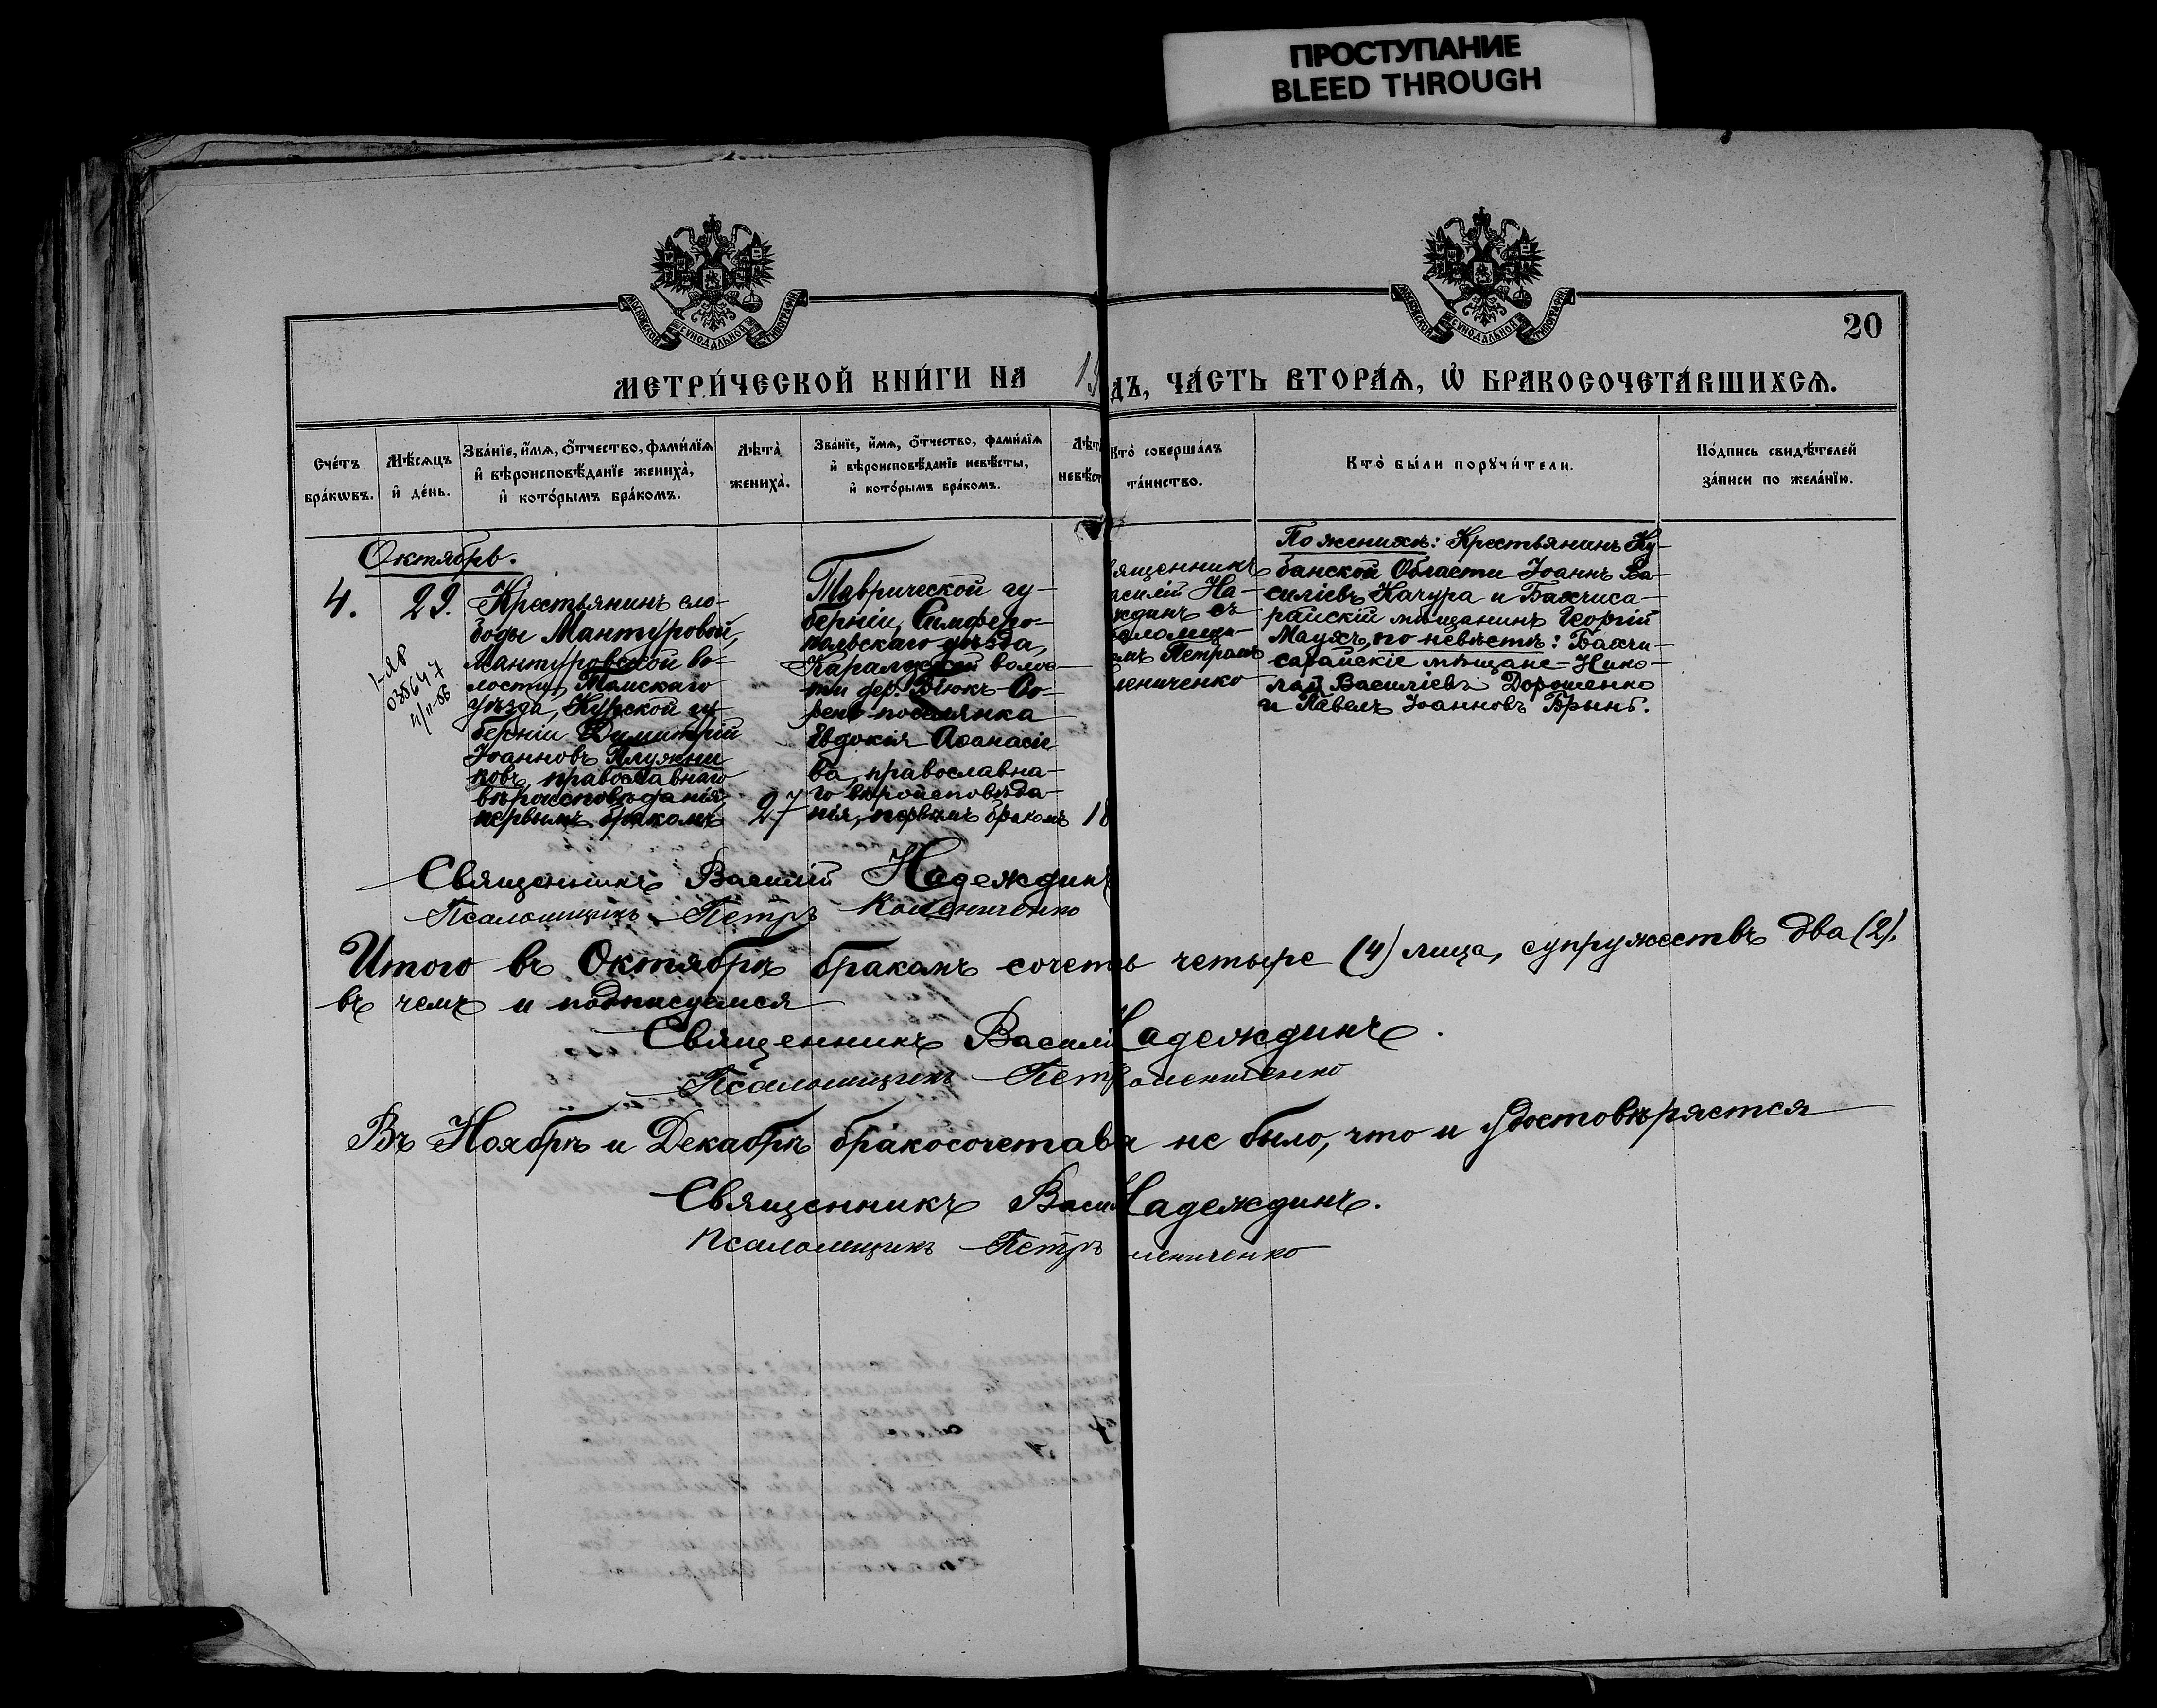 ПРОСТУПАНИЕ
BLEED THROUGH
МОСКОВСКОЙ СѴНОДАЛЬНОЙ ТИПОГРАФІИ
МОСКОВСКОЙ СѴНОДАЛЬНОЙ ТИПОГРАФІИ
20
МЕТРИ́ЧЕСКОЙ КНИ́ГИ НА 19
ДЪ, ЧА́СТЬ ВТОРА́Ѧ, Ѽ БРАКОСОЧЕТА́ВШИХСѦ.
Сче́тъ бра́кѡвъ.
Мѣ́сѧцъ и҆ де́нь.
Зва́нїе, и҆́мѧ, ѻ҆́тчество, фами́лїѧ
и҆ вѣроисповѣ́данїе жениха̀,
и҆ кото́рымъ бра́комъ.
Лѣта̀ жениха̀.
Зва́нїе, и҆́мѧ, ѻ҆́тчество, фами́лїѧ
и҆ вѣроисповѣ́данїе невѣ́сты,
и҆ кото́рымъ бра́комъ.
Лѣт
невѣст
Кто̀ соверша́лъ
та́инство.
Кто̀ бы́ли порꙋчи́тели.
По́дпись свидѣ́телей
за́писи по жела́нїю.
Октябрь.
4.
29.
1-ЯР
035647
Крестьянинъ сло-
боды Мантуровой,
Мантуровской во-
лости, Тимскаго
уѣзда, Курской гу-
берніи Димитрій
Іоанновъ Плужни
ковъ, православнаго
вѣроисповѣданія,
первымъ бракомъ
27
Таврической гу-
берніи, Симферо-
польскаго уѣзда,
Каралезской волос-
ти дер. Біюкъ-Со-
рень поселянка
Евдокія Аѳанасіе
ва, православна-
го вѣроисповѣда-
нія, первымъ бракомъ
18
вященникъ
асилій На-
ждинъ съ
аломщи-
омъ Петромъ
лениченко
По женихѣ: Крестьянинъ Ку-
банской Области Іоаннъ Ва-
силіевъ Качура и Бахчиса-
райскій мѣщанинъ Георгій
Маухъ, по невѣстѣ: Бахчи-
сарайскіе мѣщане - Нико-
лай Василіевъ Дорошенко
и Павелъ Іоанновъ Брынь.
Священникъ Василій Надеждинъ
Псаломщикъ Петръ Колениченко
Итого въ Октябрѣ бракомъ сочет ь четыре (4) лица, супружествъ два (2).
въ чемъ и подписуемся
Священникъ Васили Надеждинъ.
Псаломщикъ Петр олениченко
Въ Ноябрѣ и Декабрѣ бракосочетав я не было, что и удостовѣряется
Священникъ Васи Надеждинъ.
Псаломщикъ Петръ лениченко